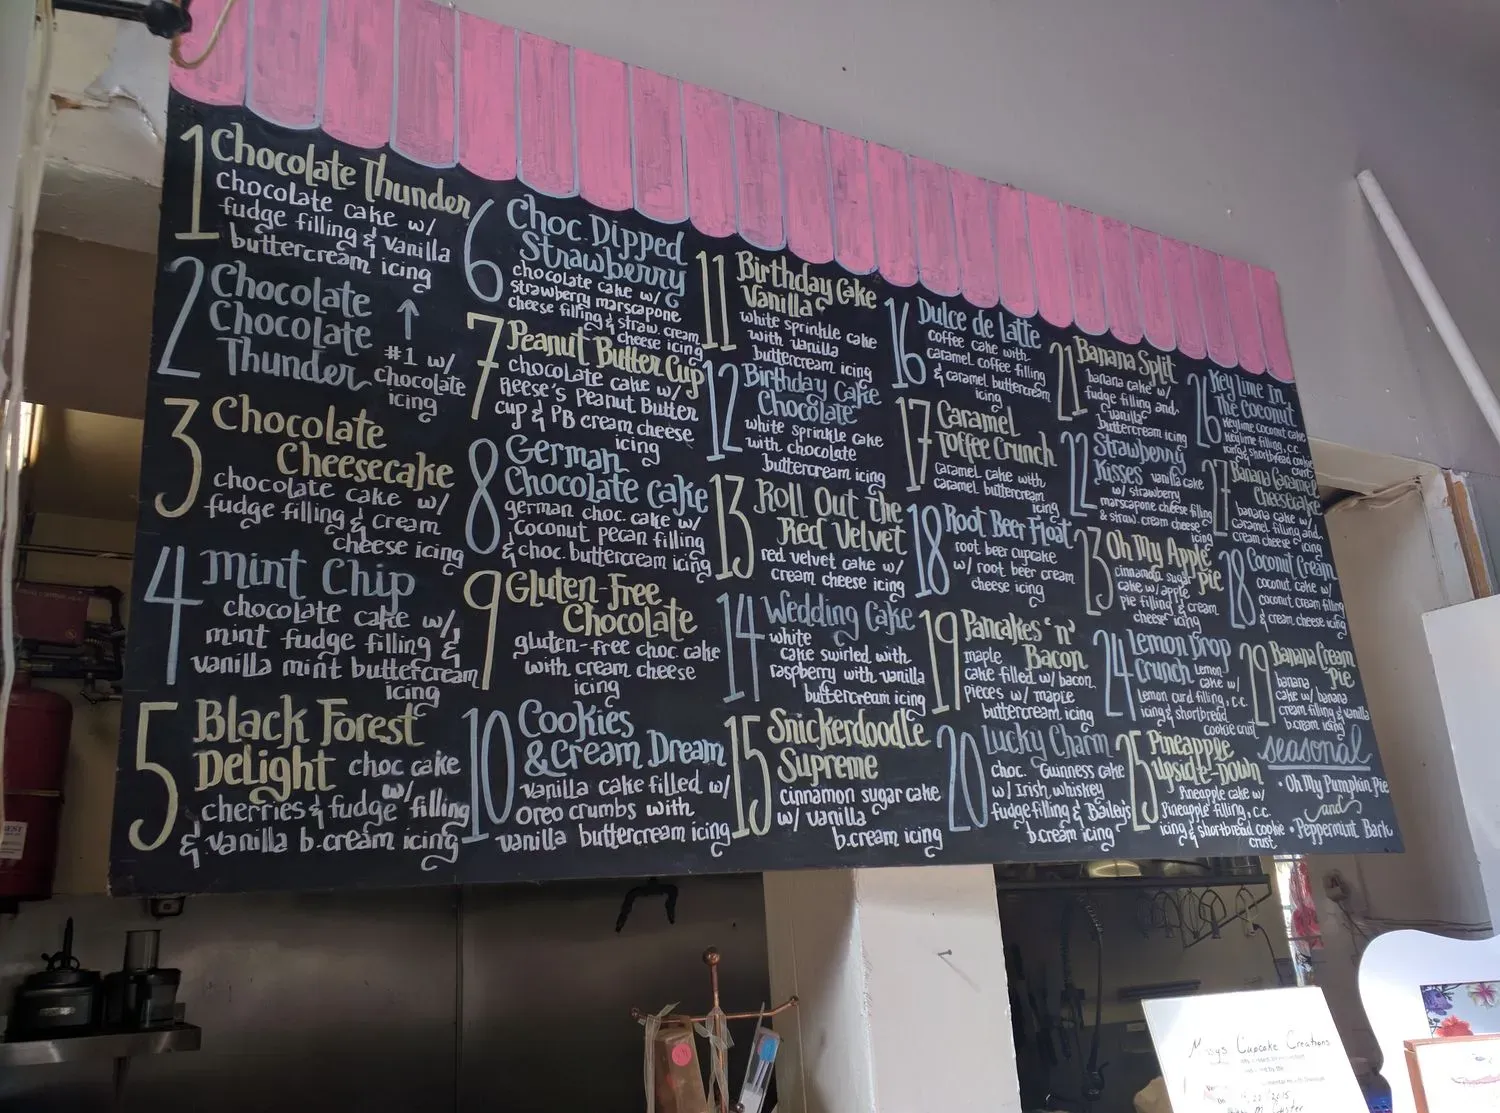 1 Chocolate Thunder
chocolate cake w/
fudge filling & vanilla
buttercream icing
2 Chocolate
Chocolate
Thunder
#1 w/
chocolate
icing
3 Chocolate
Cheesecake
chocolate cake w/
fudge filling & cream
cheese icing
4 Mint Chip
chocolate cake w/
mint fudge filling &
vanilla mint buttercream
icing
5 Black Forest
Delight choc cake
w/
cherries & fudge filling
& vanilla b.cream icing
6 Choc. Dipped
Strawberry
chocolate cake w/
strawberry marscapone
cheese filling & straw. cream
cheese icing
7 Peanut Butter Cup
chocolate cake w/
Reese's Peanut Butter
cup & PB cream cheese
icing
8 German
Chocolate Cake
german choc. cake w/
coconut pecan filling
& choc. buttercream icing
9 Gluten-Free
Chocolate
gluten-free choc. cake
with cream cheese
icing
10 Cookies
& Cream Dream
vanilla cake filled w/
oreo crumbs with
vanilla buttercream icing
11 Birthday Cake
Vanilla
white sprinkle cake
with vanilla
buttercream icing
12 Birthday Cake
Chocolate
white sprinkle cake
with chocolate
buttercream icing
13 Roll Out the
Red Velvet
red velvet cake w/
cream cheese icing
14 Wedding Cake
white
cake swirled with
raspberry with vanilla
buttercream icing
15 Snickerdoodle
Supreme
cinnamon sugar cake
w/ vanilla
b.cream icing
16 Dulce de latte
coffee cake with
caramel coffee filling
& caramel buttercream
icing
17 Caramel
Toffee Crunch
caramel cake with
caramel buttercream
icing
18 Root Beer Float
root beer cupcake
w/ root beer cream
cheese icing
19 Pancakes 'n'
Bacon
maple
cake filled w/ bacon
pieces w/ maple
buttercream icing
20 Lucky Charm
choc. Guinness cake
w/ Irish whiskey
fudge filling & Baileys
b.cream icing
21 Banana Split
banana cake w/
fudge filling and
vanilla
buttercream icing
22 Strawberry
Kisses vanilla cake
w/ strawberry
marscapone cheese filling
& straw. cream cheese
icing
23 Oh My Apple
Pie
cinnamon sugar
cake w/ apple
pie filling & cream
cheese icing
24 Lemon Drop
Crunch lemon
cake w/
lemon curd filling, c.c.
icing & shortbread
cookie crust
25 Pineapple
Upside-Down
Pineapple cake w/
Pineapple filling, c.c.
icing & shortbread cookie
crust
26 Key lime In
The Coconut
Keylime Coconut cake
keylime filling, c.c.
icing & shortbread cookie
crust
27 Banana Caramel
Cheesecake
banana cake w/
caramel filling and
cream cheese icing
28 Coconut Cream
coconut cake w/
coconut cream filling
& cream cheese icing
29 Banana Cream
Pie
banana
cake w/ banana
cream filling & vanilla
b.cream icing
seasonal
• Oh My Pumpkin Pie
and
• Peppermint Bark
Missys Cupcake Creations